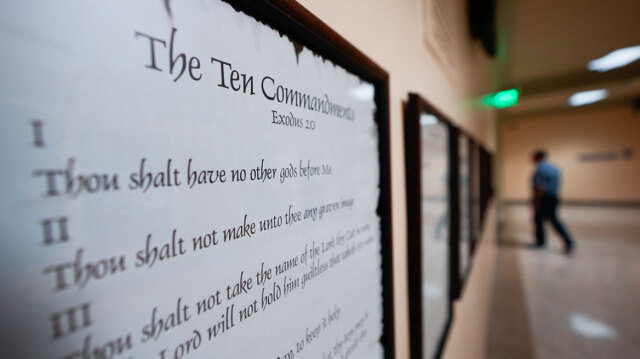 The Ten Commandments
Exodus 20
I
Thou shalt have no other gods before Me
II
Thou shalt not make unto thee any graven image
III
Thou shalt not take the name of the Lord thy God in
Lord will not hold him guiltless that
to keep it holy